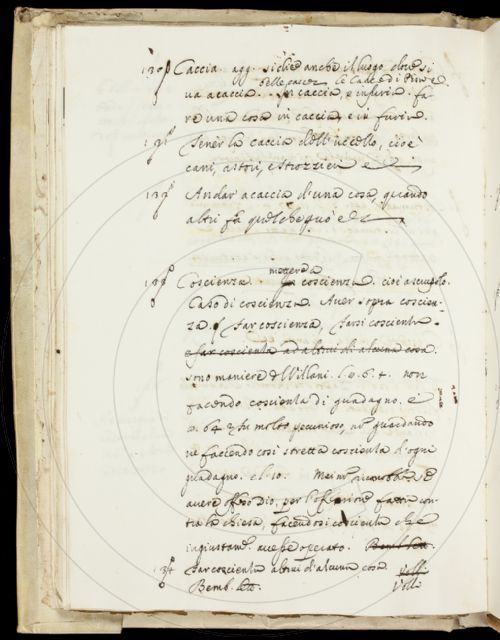 130 Caccia. agg. si dice anche il luogo, dove si
delle cacce Le Cacce di Pirn e
va a caccia. In caccia, e in furia. fa
re una cosa in caccia, e in furia.
Tener la caccia dell'uccello, cioè
cani, astori, e strozzieri e
Andar a caccia d'una cosa, quando
altri fa quel che può e
metter a
Coscienza. coscienza. cioè a scrupolo.
Caso di coscienza. Aver sopra coscien-
za. far coscienza, farsi coscienta.
e far coscienta ad altrui di alcuna cosa.
sono maniere d Villani. l. 9. 6. 4. non
facendo coscienta di guadagno. e
64 fu molto pecunioso, guardando
ne faciendo così stretta coscienta d'ogni
guadagno. el. 10. e
avere offeso Dio, per l'offensione fatta con-
tra la chiesa, facendosi coscienta che
ingiustam. avesse operato. Bemb. lett.
far coscienta altrui d'alcuna cosa Volli
Bemb. lett. Volli